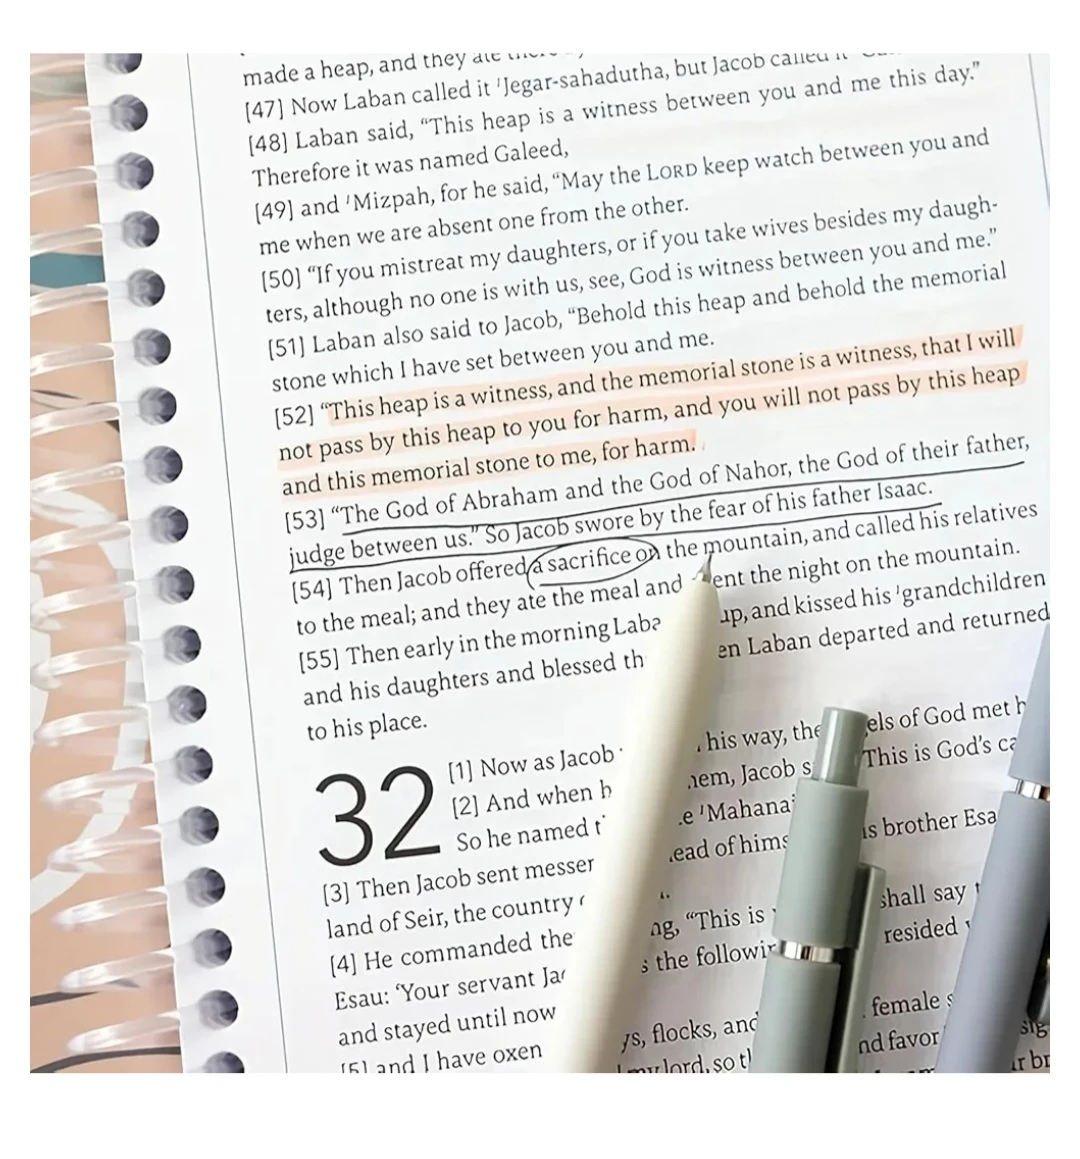 made a heap, and they ate
[47] Now Laban called it 'Jegar-sahadutha, but Jacob called it
[48] Laban said, “This heap is a witness between you and me this day.”
Therefore it was named Galeed,
[49] and 'Mizpah, for he said, “May the LORD keep watch between you and
me when we are absent one from the other.
[50] “If you mistreat my daughters, or if you take wives besides my daugh-
ters, although no one is with us, see, God is witness between you and me.”
[51] Laban also said to Jacob, “Behold this heap and behold the memorial
stone which I have set between you and me.
[52] “This heap is a witness, and the memorial stone is a witness, that I will
not pass by this heap to you for harm, and you will not pass by this heap
and this memorial stone to me, for harm.
[53] “The God of Abraham and the God of Nahor, the God of their father,
judge between us.” So Jacob swore by the fear of his father Isaac.
[54] Then Jacob offered a sacrifice on the mountain, and called his relatives
to the meal; and they ate the meal and ent the night on the mountain.
[55] Then early in the morning Laba up, and kissed his 'grandchildren
and his daughters and blessed th en Laban departed and returned
to his place.
32
[1] Now as Jacob his way, the els of God met h
[2] And when h hem, Jacob s This is God’s ca
So he named t e 'Mahanai
[3] Then Jacob sent messer ead of hims is brother Esa
land of Seir, the country
[4] He commanded the ng, “This is shall say
Esau: ‘Your servant Jac s the followin resided
and stayed until now
[5] and I have oxen ys, flocks, and female s
my lord, so th nd favor sig
r br